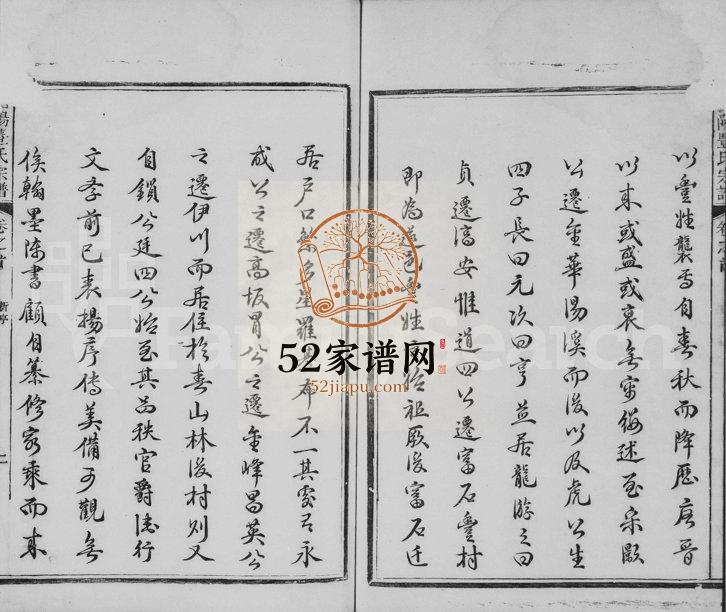 以豊姓襲焉自春秋而降歷唐晉
以來或盛或衰無容縷述至宋顯
公遷金華湯溪而後以及虎公生
四子長曰元次曰亨並居龍游三曰
貞遷高安惟道四公遷富石豊村
即為 邑豊姓 始祖厥後富石迁
居戶口繁多星羅 布不一其處 永
成公之遷高坂胃公之遷金峰昌英公
之遷伊川而居住於春山林後村則又
自鎖公廷四公始至其品秩官爵法行
文孝前已表揚序傳美備可觀無
俟翰墨陳書顧自纂修家乘而來
陽豊氏宗譜
卷之首
新亭
52家谱网
52jiapu.com
FamilySearch